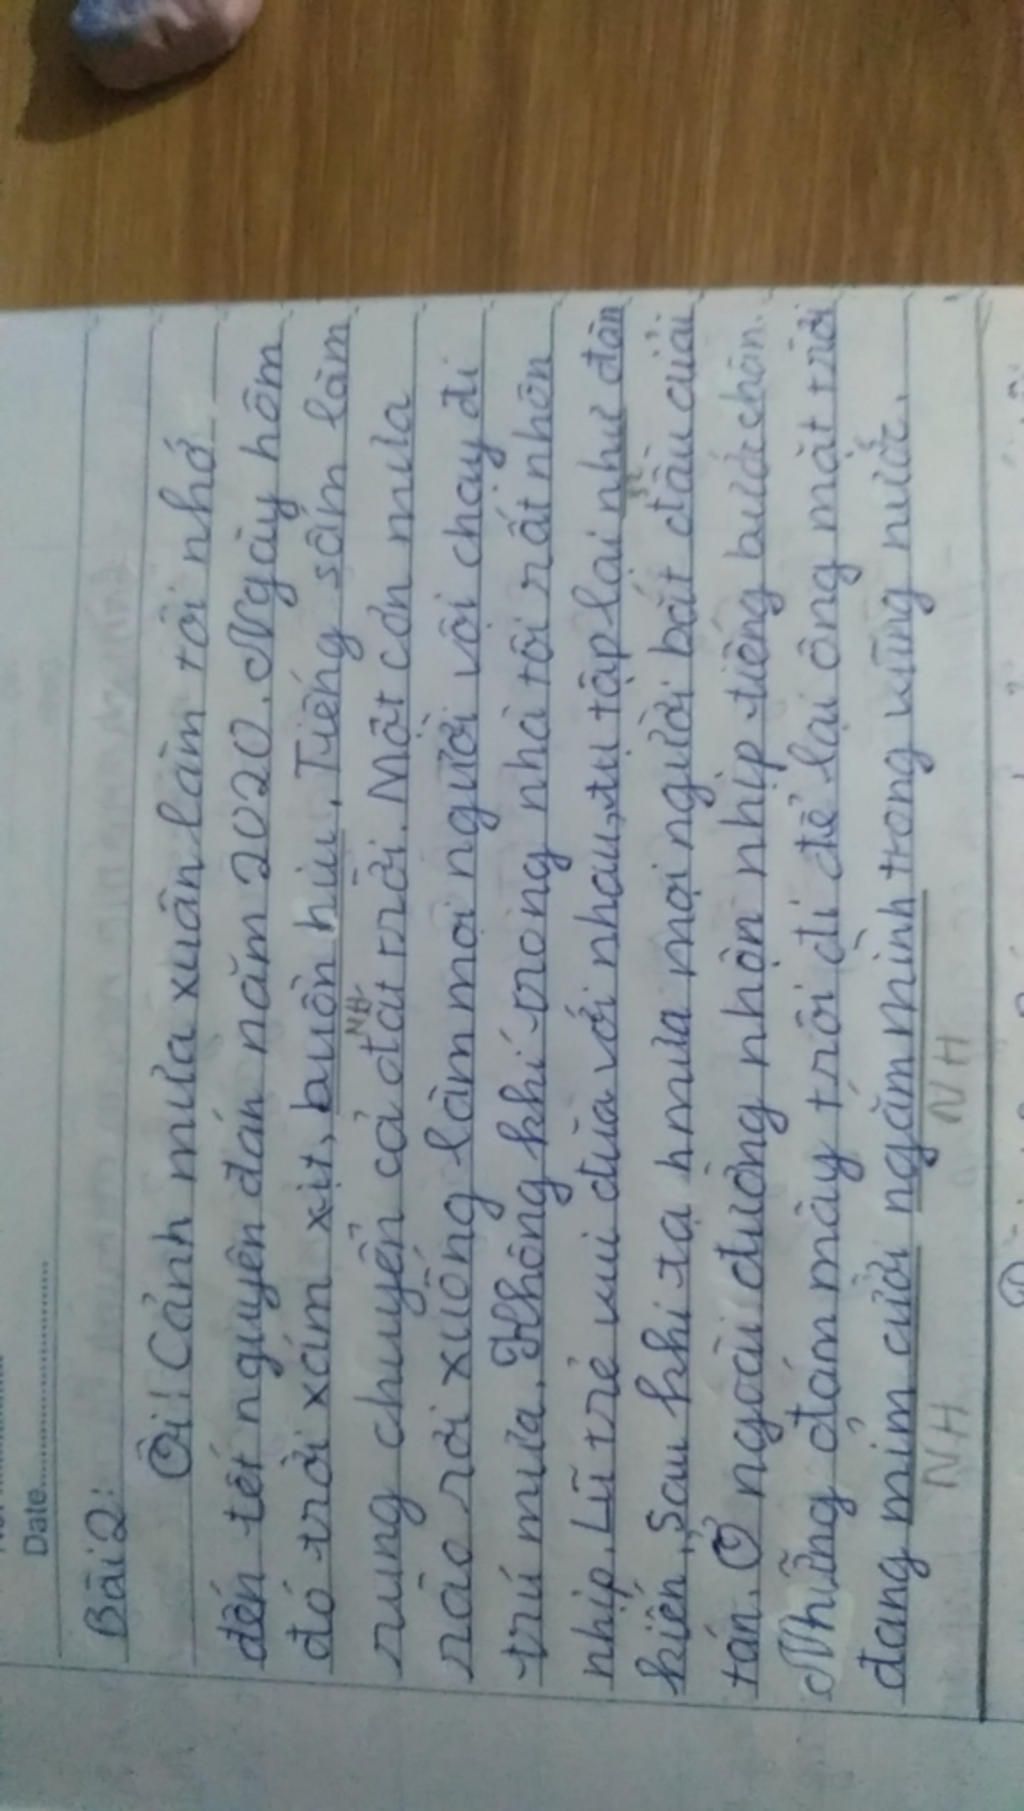 Date
Bài 2:
Ôi! Cảnh mưa xuân làm tôi nhớ
đến tết nguyên đán năm 2020. Ngày hôm
đó trời xám xịt, buồn hiu. Tiếng sấm làm
rung chuyển cả đất trời. Một cơn mưa
NH
rào rơi xuống làm mọi người vội chạy đi
trú mưa. Không khí trong nhà tôi rất nhộn
nhịp. Lũ trẻ vui đùa với nhau, tụ tập lại như đàn
kiến. Sau khi tạnh mưa mọi người bắt đầu giải
tán. Ở ngoài đường nhộn nhịp tiếng bước chân.
Những đám mây trôi đi để lại ông mặt trời
đang mỉm cười ngắm mình trong vũng nước.
NH NH